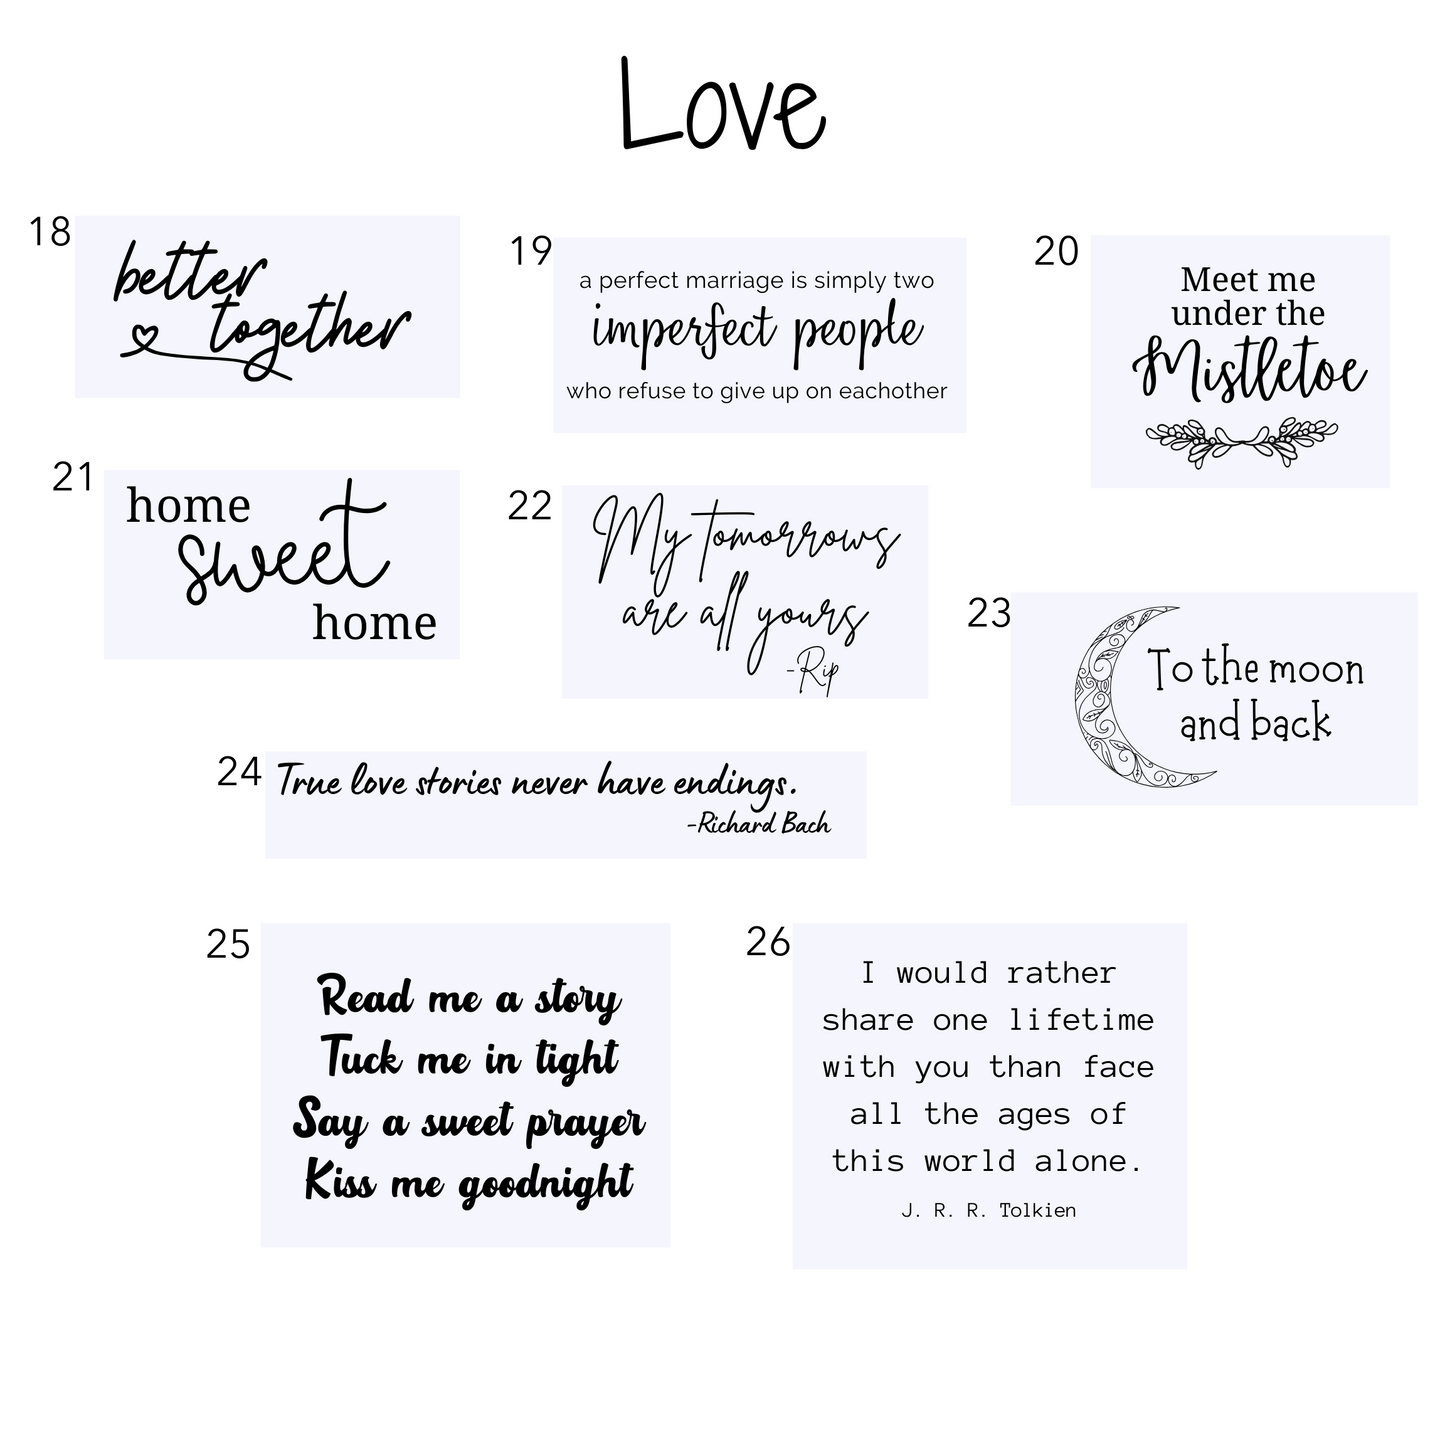 Love
18
better
together
19
a perfect marriage is simply two
imperfect people
who refuse to give up on eachother
20
Meet me
under the
Mistletoe
21
home
sweet
home
22
My tomorrows
are all yours
-Rip
23
To the moon
and back
24
True love stories never have endings.
-Richard Bach
25
Read me a story
Tuck me in tight
Say a sweet prayer
Kiss me goodnight
26
I would rather
share one lifetime
with you than face
all the ages of
this world alone.
J. R. R. Tolkien